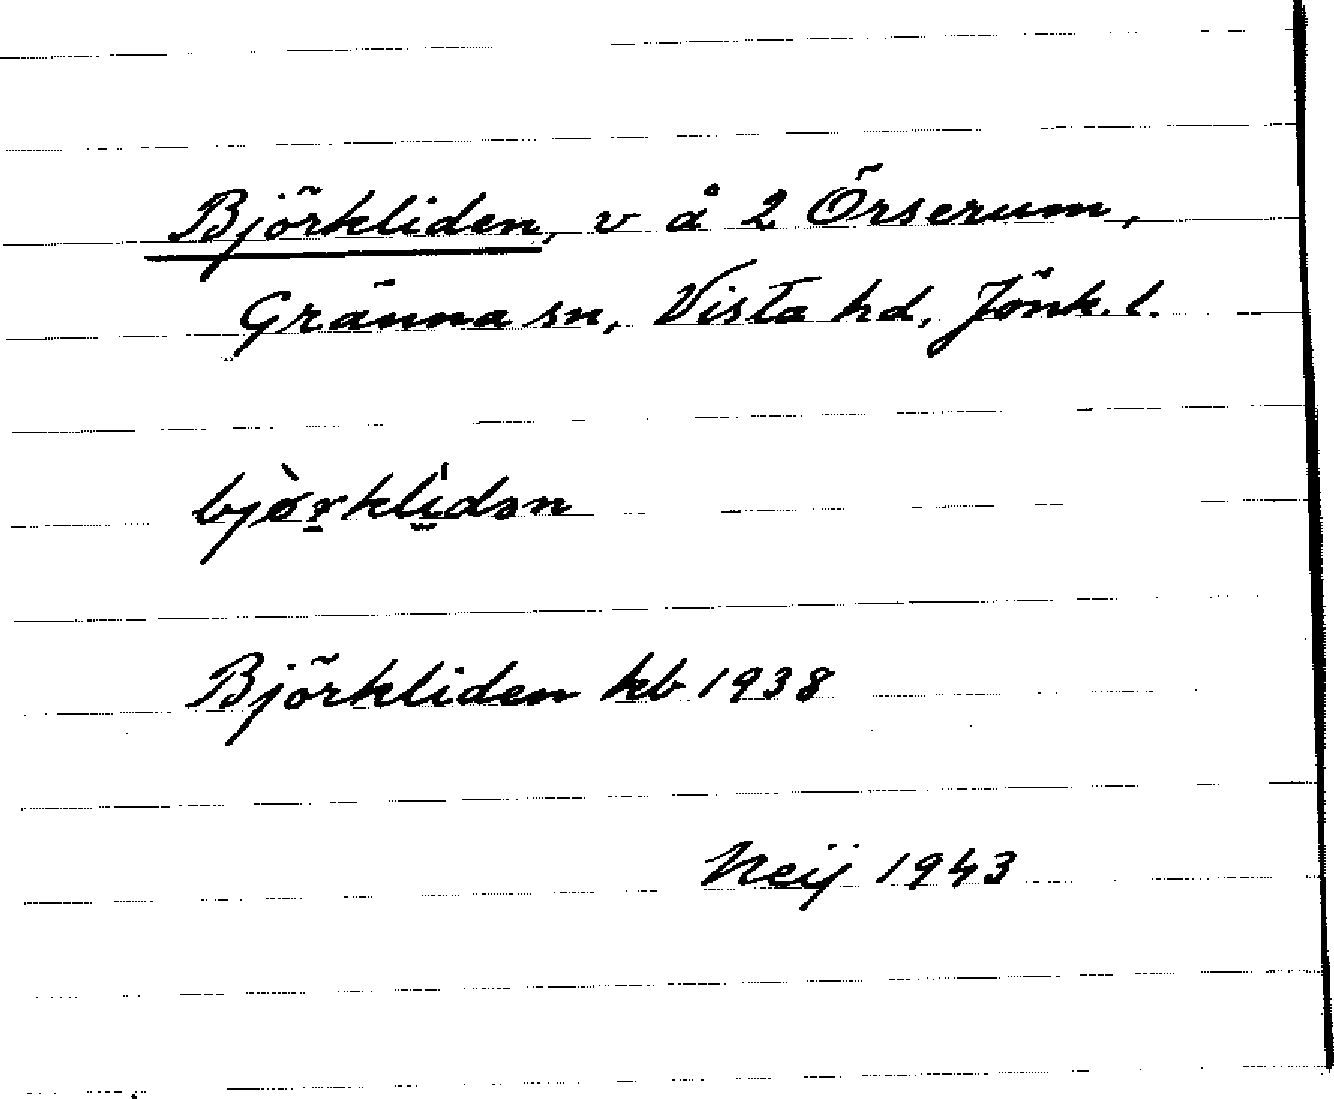 Björkliden, v å 2 Örserum,
Gränna sn, Vista hd, Jönk. l.
bjòrklidən
Björkliden kb 1938
Neij 1943